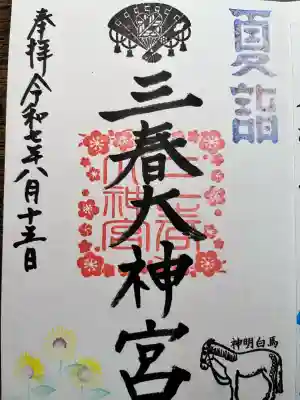 夏詣
三春大神宮
三春大神宮
奉拝 令和七年八月十五日
神明白馬